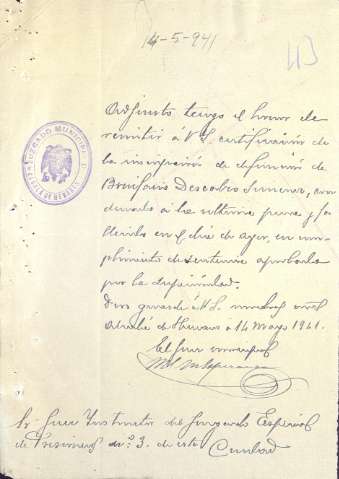 14-5-941
Adjunto tengo el honor de
remitir á V.S. certificación de
la inscripción de defunción de
Bonifacio Descalzo Jimenez, con
denado á la ultima pena y fa
llecido en el dia de ayer, en cum
plimiento de sentencia aprobada
por la Superioridad.
Dios guarde á V.S. muchos años
Alcalá de Henares á 14 Mayo 1941.
El Juez municipal
Sr. Juez Instructor del Juzgado Especial
de Prisiones nº 3. de esta Ciudad
JUZGADO MUNICIPAL
ALCALA DE HENARES